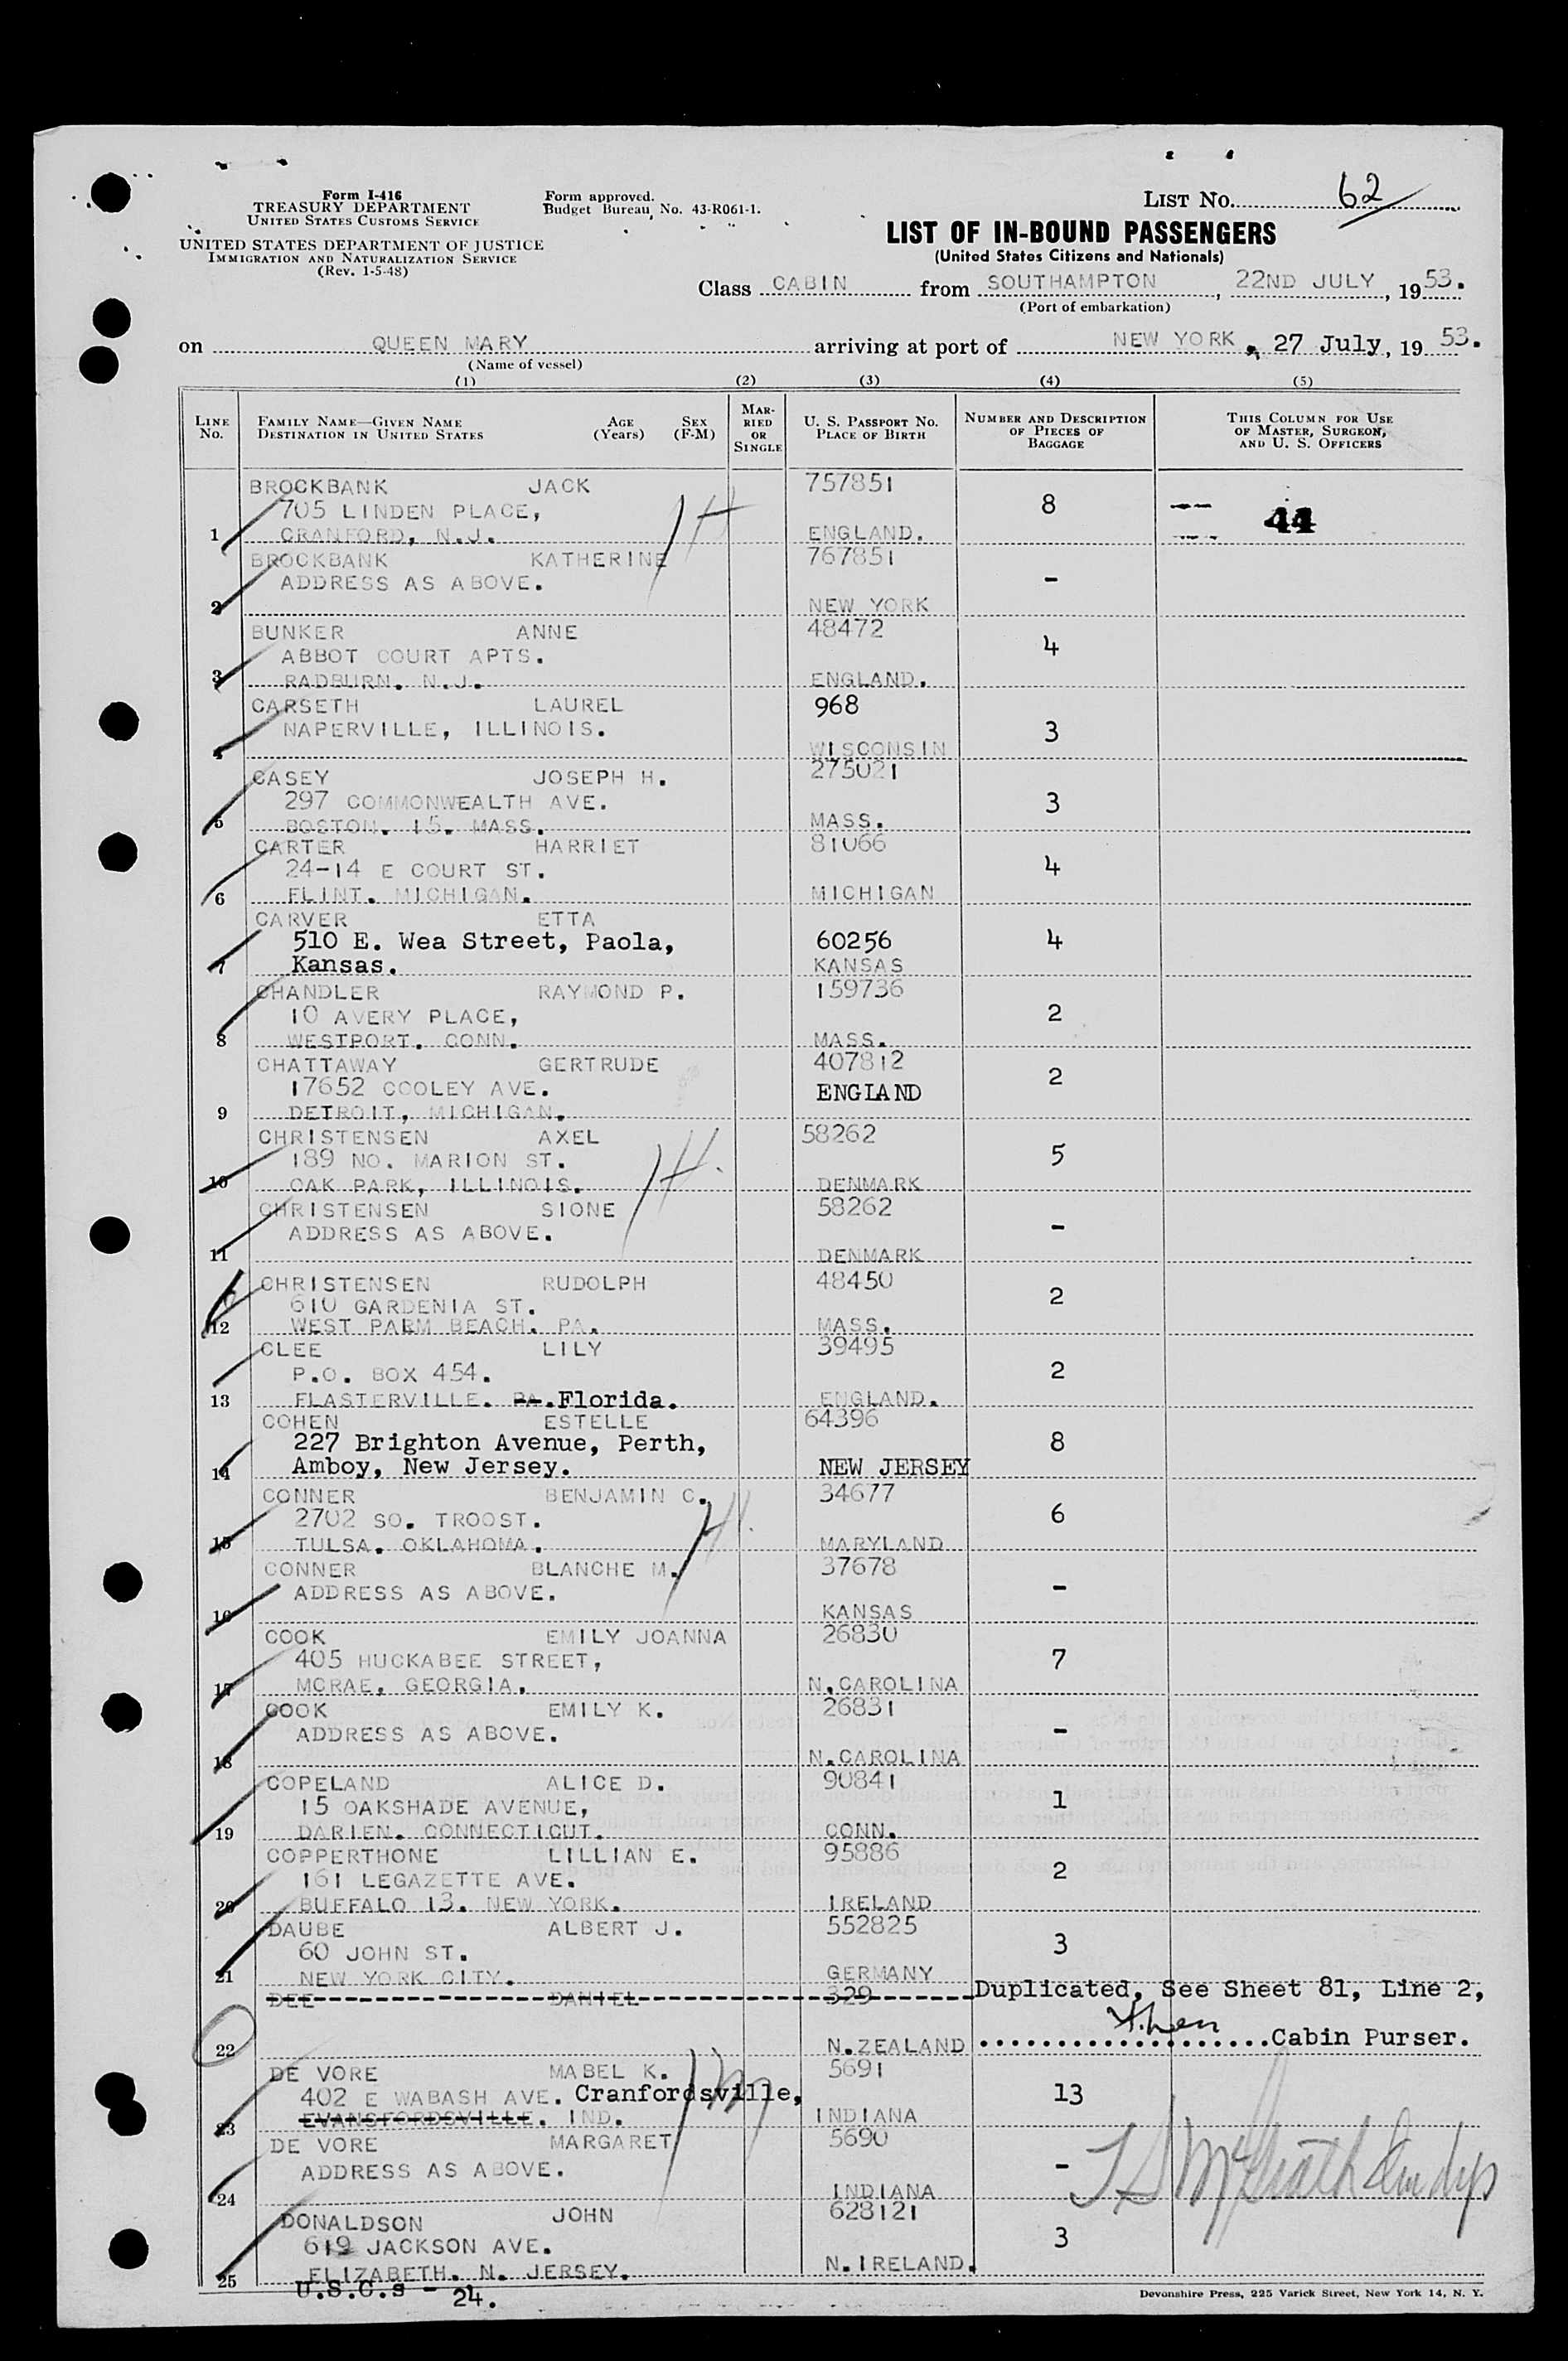 Form I-416
TREASURY DEPARTMENT
UNITED STATES CUSTOMS SERVICE
UNITED STATES DEPARTMENT OF JUSTICE
IMMIGRATION AND NATURALIZATION SERVICE
(Rev. 1-5-48)
Form approved.
Budget Bureau No. 43-R061-1.
LIST No. 62
LIST OF IN-BOUND PASSENGERS
(United States Citizens and Nationals)
Class CABIN from SOUTHAMPTON, 22ND JULY, 1953.
(Port of embarkation)
on QUEEN MARY arriving at port of NEW YORK, 27 July, 1953.
(Name of vessel)
(1) (2) (3) (4) (5)
LINE No. FAMILY NAME—GIVEN NAME DESTINATION IN UNITED STATES AGE (Years) SEX (F-M) MARRIED OR SINGLE U. S. PASSPORT No. PLACE OF BIRTH NUMBER AND DESCRIPTION OF PIECES OF BAGGAGE THIS COLUMN FOR USE OF MASTER, SURGEON, AND U. S. OFFICERS
BROCKBANK JACK 757851
705 LINDEN PLACE, 8 44
1 CRANFORD, N.J. ENGLAND.
BROCKBANK KATHERINE 767851
ADDRESS AS ABOVE. -
2 NEW YORK
BUNKER ANNE 48472
ABBOT COURT APTS. 4
3 RADBURN. N.J. ENGLAND.
CARSETH LAUREL 968
NAPERVILLE, ILLINOIS. 3
4 WISCONSIN
CASEY JOSEPH H. 275021
297 COMMONWEALTH AVE. 3
5 BOSTON. 15. MASS. MASS.
CARTER HARRIET 81066
24-14 E COURT ST. 4
6 FLINT. MICHIGAN. MICHIGAN
CARVER ETTA
510 E. Wea Street, Paola, 60256 4
7 Kansas. KANSAS
CHANDLER RAYMOND P. 159736
10 AVERY PLACE, 2
8 WESTPORT. CONN. MASS.
CHATTAWAY GERTRUDE 407812
17652 COOLEY AVE. ENGLAND 2
9 DETROIT, MICHIGAN.
CHRISTENSEN AXEL 58262
189 NO. MARION ST. 5
10 OAK PARK, ILLINOIS. DENMARK
CHRISTENSEN SIONE 58262
ADDRESS AS ABOVE. -
11 DENMARK
CHRISTENSEN RUDOLPH 48450
610 GARDENIA ST. 2
12 WEST PARM BEACH. PA. MASS.
CLEE LILY 39495
P.O. BOX 454. 2
13 FLASTERVILLE. PA. Florida. ENGLAND.
COHEN ESTELLE 64396
227 Brighton Avenue, Perth, 8
14 Amboy, New Jersey. NEW JERSEY
CONNER BENJAMIN C. 34677
2702 SO. TROOST. 6
15 TULSA. OKLAHOMA. MARYLAND
CONNER BLANCHE M. 37678
ADDRESS AS ABOVE. -
16 KANSAS
COOK EMILY JOANNA 26830
405 HUCKABEE STREET, 7
17 MCRAE, GEORGIA. N.CAROLINA
COOK EMILY K. 26831
ADDRESS AS ABOVE. -
18 N.CAROLINA
COPELAND ALICE D. 90841
15 OAKSHADE AVENUE, 1
19 DARIEN. CONNECTICUT. CONN.
COPPERTHONE LILLIAN E. 95886
161 LEGAZETTE AVE. 2
20 BUFFALO 13. NEW YORK. IRELAND
DAUBE ALBERT J. 552825
60 JOHN ST. 3
21 NEW YORK CITY. GERMANY
DEE DANIEL 329 Duplicated, See Sheet 81, Line 2,
22 N.ZEALAND ....................Cabin Purser.
DE VORE MABEL K. 5691
402 E WABASH AVE. Cranfordsville, 13
23 EVANSFORDSVILLE. IND. INDIANA
DE VORE MARGARET 5690
ADDRESS AS ABOVE. -
24 INDIANA
DONALDSON JOHN 628121
619 JACKSON AVE. 3
25 ELIZABETH. N. JERSEY. N.IRELAND.
U.S.C.s - 24.
Devonshire Press, 225 Varick Street, New York 14, N. Y.